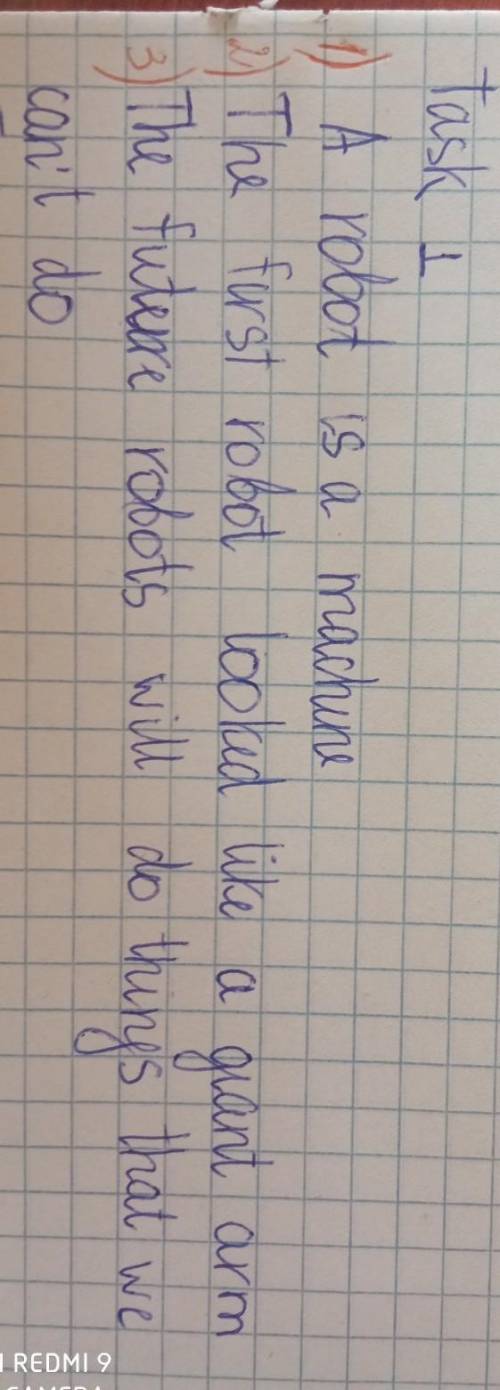 Task 1
1) A robot is a machine
2) The first robot looked like a giant arm
3) The future robots will do things that we
can't do
REDMI 9
CAMERA